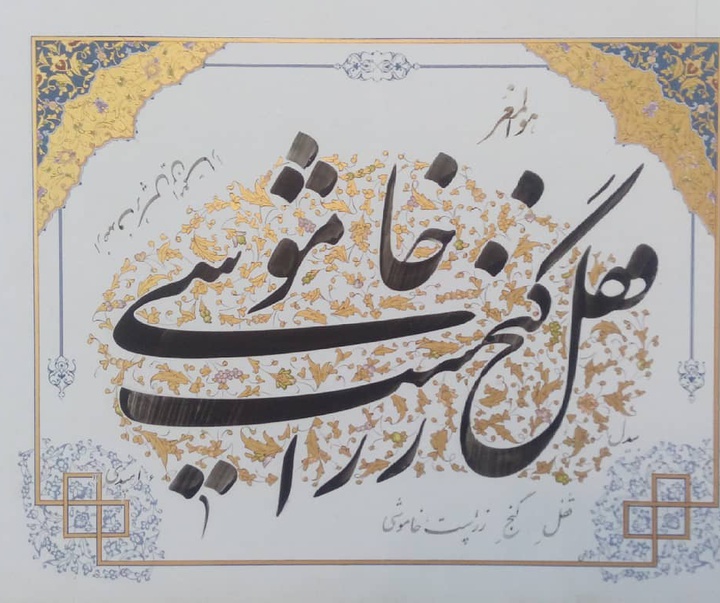 هوالمعز
قفل گنج زر است خاموشی
بیدل
قفلِ گنجِ زر است خاموشی